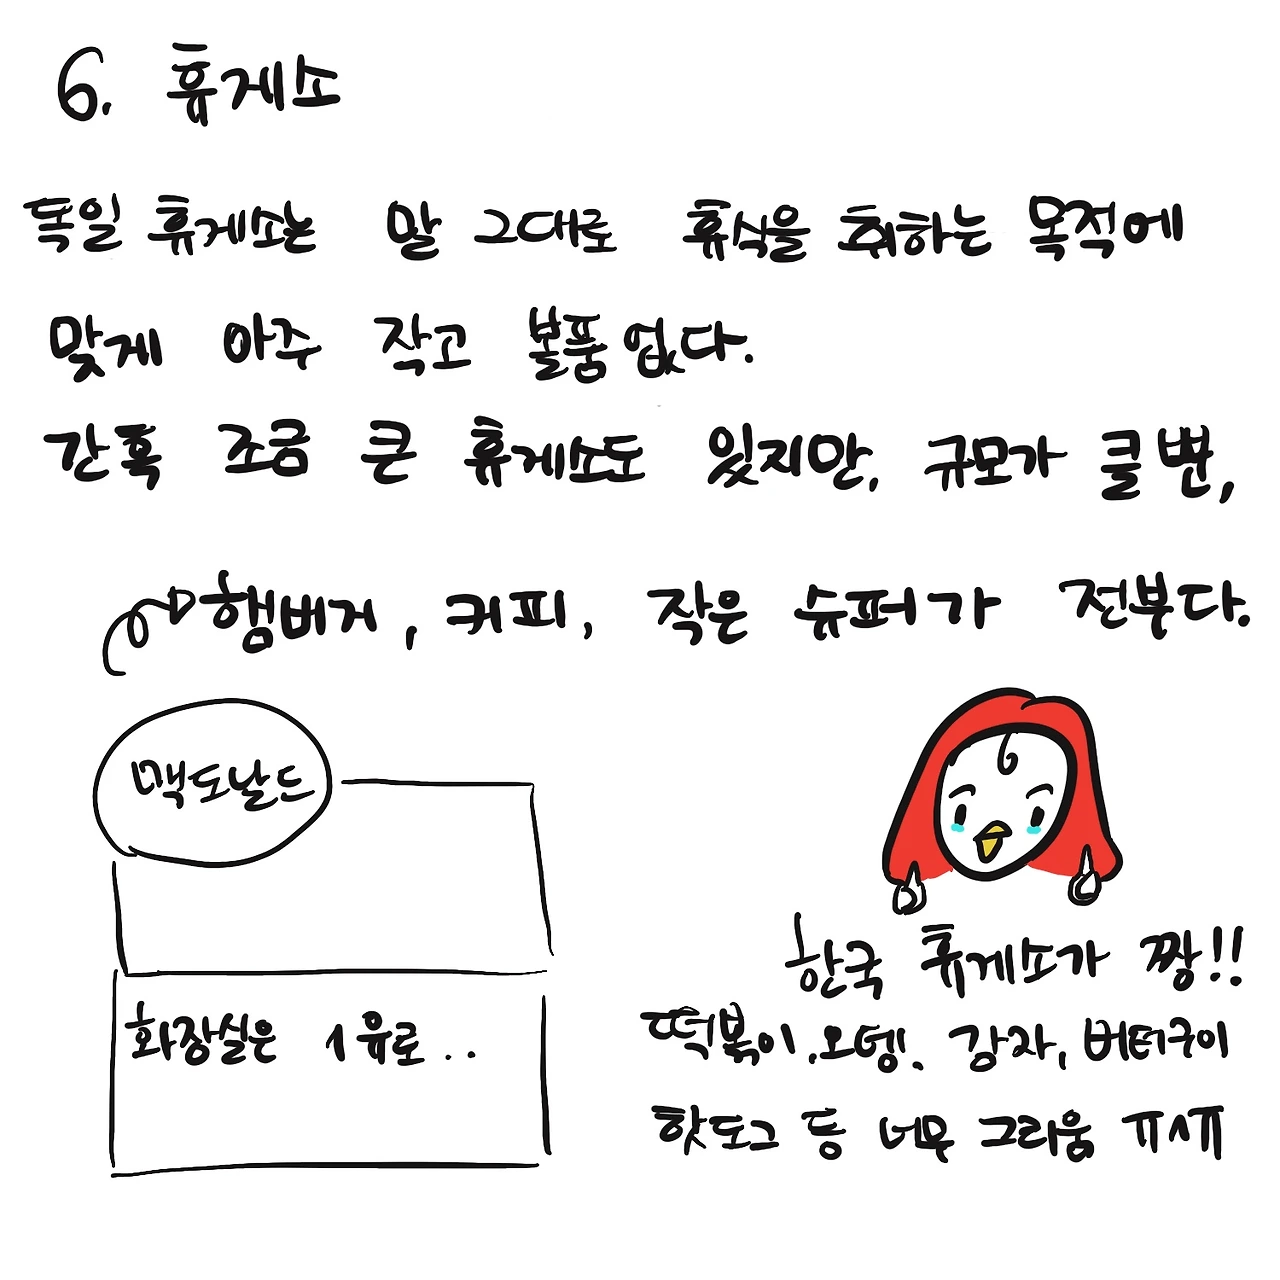 6. 휴게소
독일 휴게소는 말 그대로 휴식을 취하는 목적에
맞게 아주 작고 볼품없다.
간혹 조금 큰 휴게소도 있지만, 규모가 클 뿐,
햄버거, 커피, 작은 슈퍼가 전부다.
맥도날드
화장실은 1유로..
한국 휴게소가 짱!!
떡볶이, 오뎅, 감자, 버터구이
핫도그 등 너무 그리움 ㅠㅅㅠ